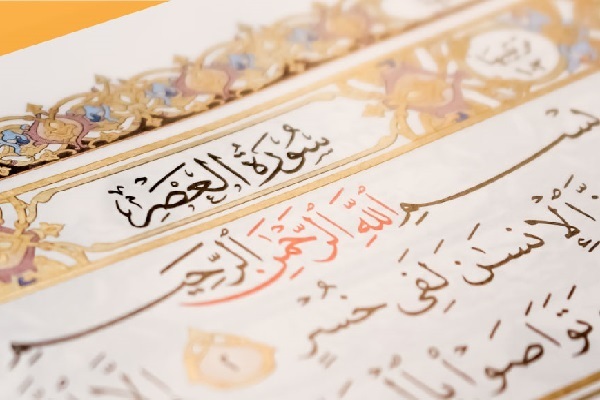 سُورَةُ العَصْرِ
بِسْمِ اللَّهِ الرَّحْمَنِ الرَّحِيمِ
ٱلْإِنسَـٰنَ لَفِى خُسْرٍ ٢
تَوَاصَوْا۟